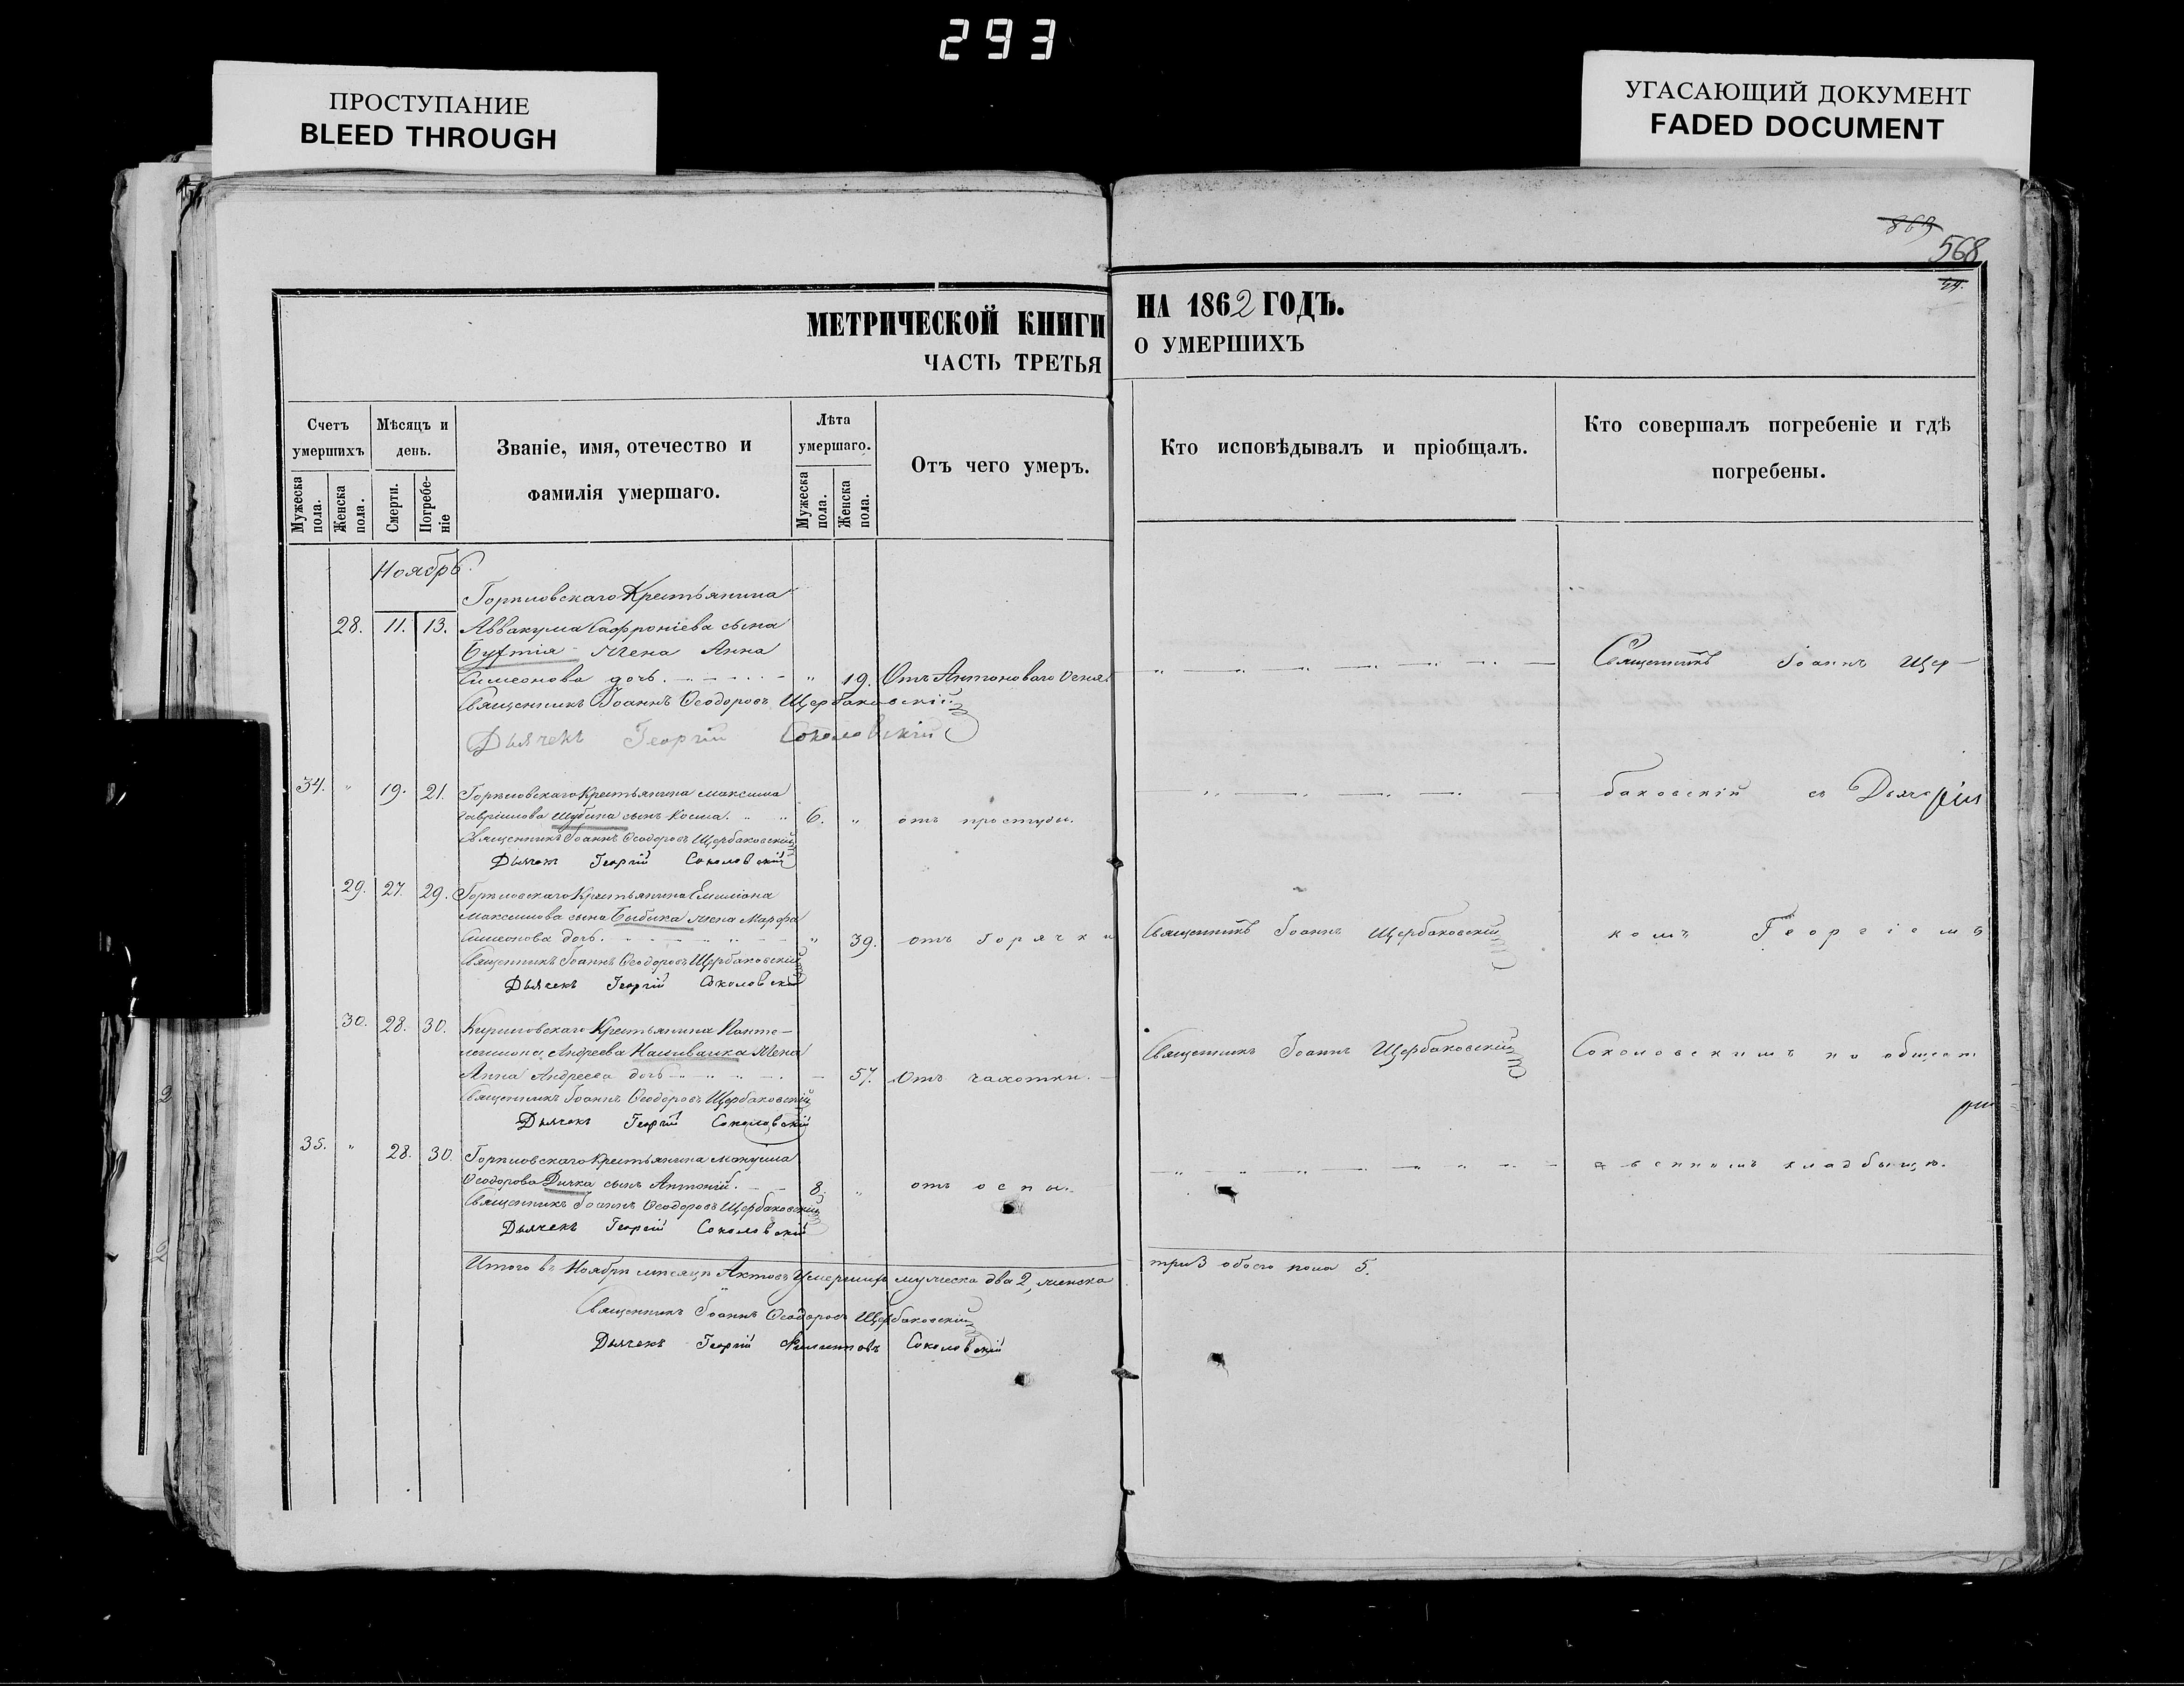 293
ПРОСТУПАНИЕ
BLEED THROUGH
УГАСАЮЩИЙ ДОКУМЕНТ
FADED DOCUMENT
869
568
МЕТРИЧЕСКОЙ КНИГИ НА 1862 ГОДЪ.
ЧАСТЬ ТРЕТЬЯ О УМЕРШИХЪ
Счетъ умершихъ
Мужеска пола.
Женска пола.
Мѣсяцъ и день.
Смерти.
Погребе-ніе
Званіе, имя, отечество и
фамилія умершаго.
Лѣта умершаго.
Мужеска пола.
Женска пола.
Отъ чего умеръ.
Кто исповѣдывалъ и пріобщалъ.
Кто совершалъ погребеніе и гдѣ
погребены.
Ноябрь.
Крестьянина
28. 11. 13. Аввакума Сафроніева сына
жена Анна
Симеонова дочь. " 19. Отъ Антонового огня
Священникъ Іоаннъ Щер-
Священникъ Іоаннъ Ѳеодоровъ Щербаковскій
Дьячекъ Георгій Соколовскій
34. " 19. 21. Крестьянина Максима
Гавріилова Шубина сынъ Косма. 6. " отъ простуды.
баковскій съ
Священникъ Іоаннъ Ѳеодоровъ Щербаковскій
Дьячекъ Георгій Соколовскій
29. 27. 29. Крестьянина Емиліана
Максимова сына Бибика жена Марфа
Симеонова дочь. " 39. отъ горячки
Священникъ Іоаннъ Щербаковскій
комъ Георгіемъ
Священникъ Іоаннъ Ѳеодоровъ Щербаковскій
Дьячекъ Георгій Соколовскій
30. 28. 30. Крестьянина Панте-
леимона Андреева жена
Анна Андреева дочь 57. Отъ чахотки.
Священникъ Іоаннъ Щербаковскій
Соколовскимъ на общест
Священникъ Іоаннъ Ѳеодоровъ Щербаковскій
Дьячекъ Георгій Соколовскій
35. " 28. 30. Крестьянина
Ѳеодорова Дичка сынъ Антоній. 8. " отъ оспы.
венномъ кладбищѣ.
Священникъ Іоаннъ Ѳеодоровъ Щербаковскій
Дьячекъ Георгій Соколовскій
Итого въ Ноябрѣ мѣсяцѣ Актовъ Умершихъ мужеска два 2, женска три 3 обоего пола 5.
Священникъ Іоаннъ Ѳеодоровъ Щербаковскій
Дьячекъ Георгій Соколовскій